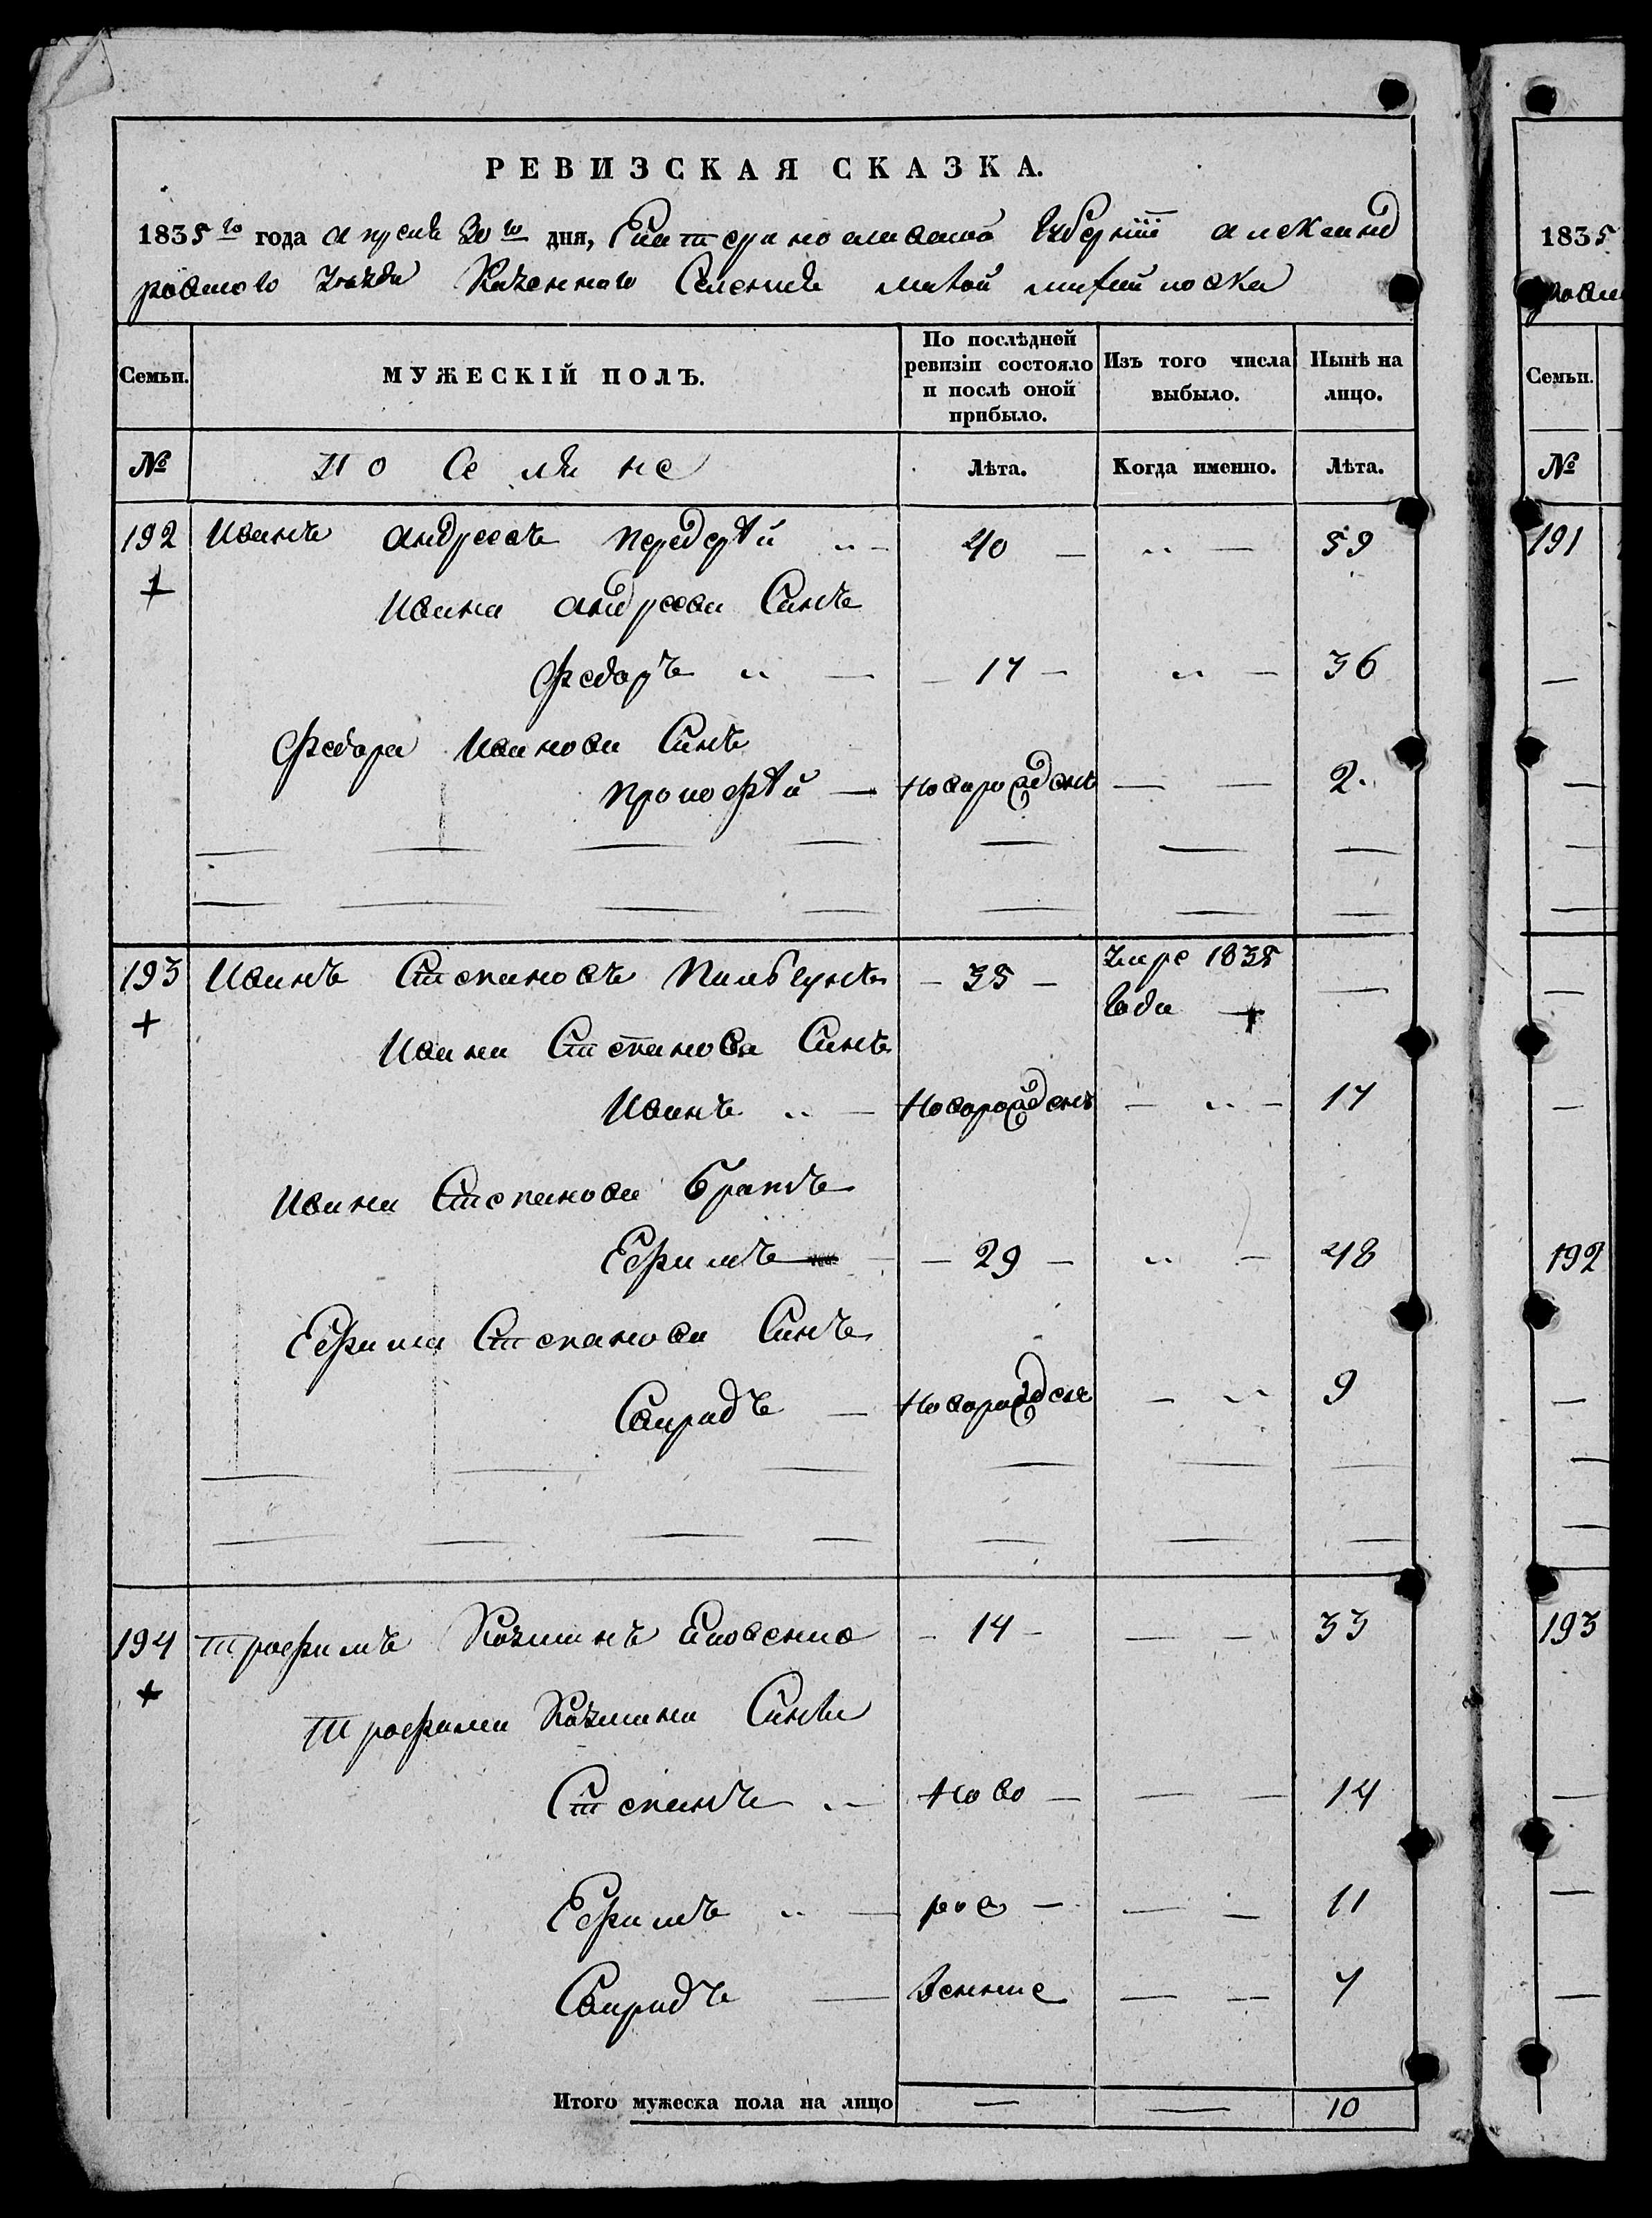 РЕВИЗСКАЯ СКАЗКА.
1835 го года апреля 30 го дня, Екатеринославской Губернии александ
ровского уезда Казенного Селения малой михайловки
Семьи.
МУЖЕСКІЙ ПОЛЪ.
По послѣдней ревизіи состояло и послѣ оной прибыло.
Изъ того числа выбыло.
Нынѣ на лицо.
№ Поселяне Лѣта. Когда именно. Лѣта.
192 Иванъ андреевъ передерѣй 40 — „ — 59
Ивана андреева Синъ
федоръ „ — 17 — „ — 36
федора Иванова Синъ
прокофѣй — новорожденъ — — 2.
193 Иванъ Степановъ — 35 — умре 1835 года —
Ивана Степанова Синъ
Иванъ „ — новорожденъ — „ — 17
Ивана Степанова братъ
Ефимъ — 29 — „ — 48
Ефима Степанова Синъ
Свиридъ — новорожденъ — „ 9
194 трофимъ Козминъ — 14 — — — 33
трофима Козмина Сины
Степанъ „ — ново — — — 14
Ефимъ „ — рож — — — 11
Свиридъ — денние — — 7
Итого мужеска пола на лицо — — 10
1835
Семьи.
№
191
192
193